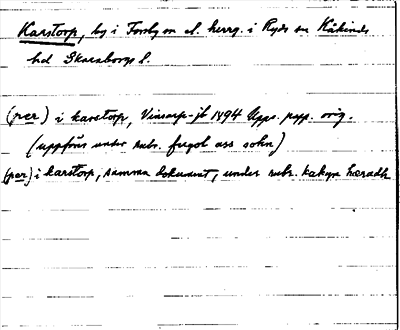 Karstorp, by i Forsby sn el. herrg. i Ryds sn Kåkinds
hd Skaraborgs l.
(per) i karstorp, Vinsarp-jb 1494 Upps. papp. orig.
(uppförs under rubr. fugol ass sokn)
(per) i karstorp, samma dokument, under rubr. kakyn hæradh